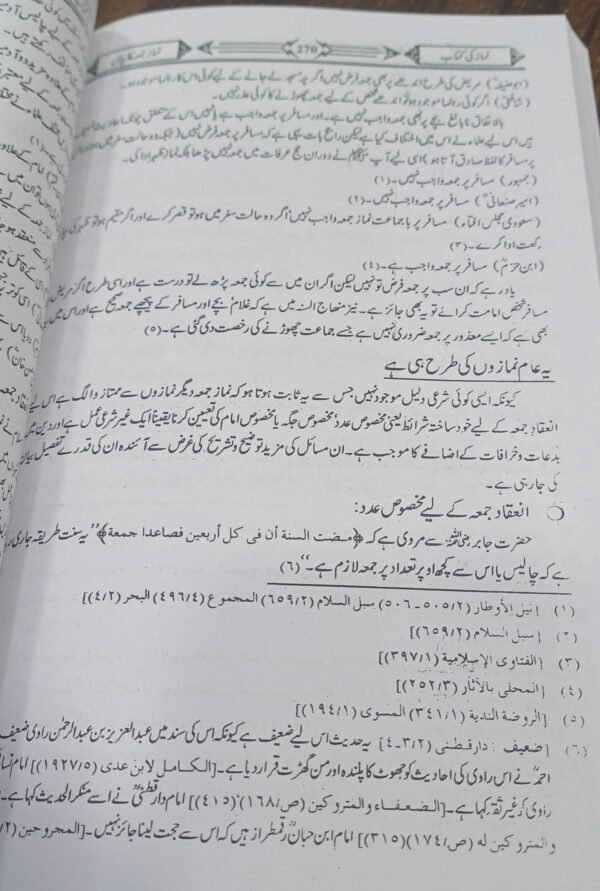 نماز کی کتاب 270 نماز جمعہ کا بیان
(ابوحنیفہؒ) مریض کی طرح اندھے پر بھی جمعہ فرض نہیں اگرچہ مسجد لے جانے کے لیے کوئی اس کا رہنما موجود ہو۔
(شافعیؒ) اگر کوئی رہنما موجود ہو تو اندھے شخص کے لیے جمعہ چھوڑنے کا کوئی عذر نہیں۔
بالاتفاق نابالغ بچے پر بھی جمعہ واجب نہیں۔ اور مسافر پر جمعہ واجب ہے یا نہیں اس کے متعلق چونکہ احادیث
ہیں اس لیے علماء نے اس میں اختلاف کیا ہے لیکن راجح بات یہی ہے کہ مسافر پر جمعہ فرض نہیں (بلکہ وہ حالت سفر میں
پر مسافر کا لفظ صادق آتا ہو) اسی لیے آپ ﷺ نے دوران حج عرفات میں جمعہ نہیں پڑھا بلکہ نماز ظہر ادا کی۔
(جمہور) مسافر پر جمعہ واجب نہیں۔(۱)
(امیر صنعانیؒ) مسافر پر جمعہ واجب نہیں۔(۲)
(سعودی مجلس افتاء) مسافر پر باجماعت نماز جمعہ واجب نہیں‘ اگر وہ حالت سفر میں ہو تو قصر کرے اور اگر مقیم ہو تو ظہر کی
رکعت ادا کرے۔(۳)
(ابن حزمؒ) مسافر پر جمعہ واجب ہے۔(٤)
یاد رہے کہ ان سب پر جمعہ فرض تو نہیں لیکن اگر ان میں سے کوئی جمعہ پڑھ لے تو درست ہے اور اسی طرح اگر مریض
مسافر شخص امامت کرائے تو یہ بھی جائز ہے۔ نیز منھاج السنہ میں ہے کہ غلام‘ بچے اور مسافر کے پیچھے جمعہ صحیح ہے اور اس میں
بھی ہے کہ ایسے معذور پر جمعہ ضروری نہیں ہے جسے جماعت چھوڑنے کی رخصت دی گئی ہے۔(٥)
یہ عام نمازوں کی طرح ہی ہے
کیونکہ ایسی کوئی شرعی دلیل موجود نہیں جس سے یہ ثابت ہوتا ہو کہ نماز جمعہ دیگر نمازوں سے ممتاز و الگ ہے اس لیے
انعقاد جمعہ کے لیے خود ساختہ شرائط یعنی مخصوص عدد‘ مخصوص جگہ یا مخصوص امام کی تعیین کرنا یقیناً ایک غیر شرعی عمل ہے اور دین میں
بدعات و خرافات کے اضافے کا موجب ہے۔ ان مسائل کی مزید توضیح و تشریح کی غرض سے آئندہ ان کی قدرے تفصیل بیان
کی جا رہی ہے۔
○ انعقاد جمعہ کے لیے مخصوص عدد:
حضرت جابر رضی اللہ عنہ سے مروی ہے کہ ﴿مضت السنة أن فى كل أربعين فصاعدا جمعة﴾ ’’یہ سنت طریقہ جاری
ہے کہ چالیس یا اس سے کچھ اوپر تعداد پر جمعہ لازم ہے۔‘‘(٦)
(۱) [نيل الأوطار (٥٠٥/٢-٥٠٦) سبل السلام (٦٥٩/٢) المجموع (٤٩٦/٤) البحر (٤/٢)]
(۲) [سبل السلام (٦٥٩/٢)]
(۳) [الفتاوى الإسلامية (٣٩٧/١)]
(٤) [المحلى بالآثار (٢٥٢/٣)]
(٥) [الروضة الندية (٣٤١/١) المسوى (١٩٤/١)]
(٦) [ضعيف : دارقطنى (٣/٢-٤)] یہ حدیث اس لیے ضعیف ہے کیونکہ اس کی سند میں عبدالعزیز بن عبدالرحمٰن راوی ضعیف
احمدؒ نے اس راوی کی احادیث کو جھوٹ کا پلندہ اور من گھڑت قرار دیا ہے۔ [الكامل لابن عدى (١٩٢٧/٥)] امام نسائی
راوی کو غیر ثقہ کہا ہے۔ [الضعفاء والمتروكين (ص/١٦٨) (٤١٥)] امام دارقطنیؒ نے اسے منکر الحدیث کہا ہے۔
والمتروكين له (ص/١٧٤) (٣١٥)] امام ابن حبانؒ رقمطراز ہیں کہ اس سے حجت لینا جائز نہیں۔ [المجروحين